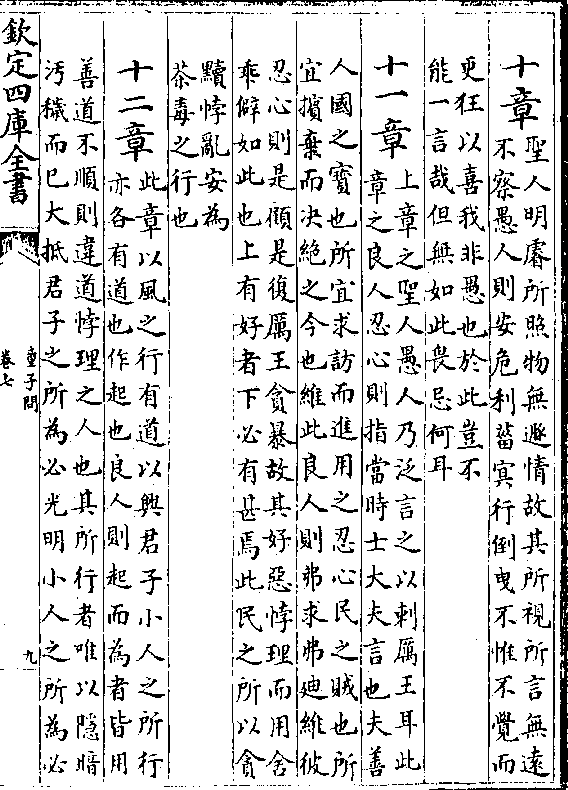 十章聖人明睿所照物無遯情故其所視所言無遠
不察愚人則安危利菑冥行倒曳不惟不覺而
更狂以喜我非愚也於此豈不
能一言哉但無如此畏忌何耳
十一章上章之聖人愚人乃泛言之以刺厲王耳此
章之良人忍心則指當時士大夫言也夫善
人國之寳也所宜求訪而進用之忍心民之賊也所
宜擯棄而决絶之今也維此良人則弗求弗廸維彼
忍心則是顧是復厲王貪暴故其好惡悖理而用舍
乖僻如此也上有好者下必有甚焉此民之所以貪
黷悖亂安為
荼毒之行也
十二章此章以風之行有道以興君子小人之所行
亦各有道也作起也良人則起而為者皆用
善道不順則違道悖理之人也其所行者唯以隱暗
汚穢而已大抵君子之所為必光明小人之所為必
欽定四庫全書
童子問
卷七
九